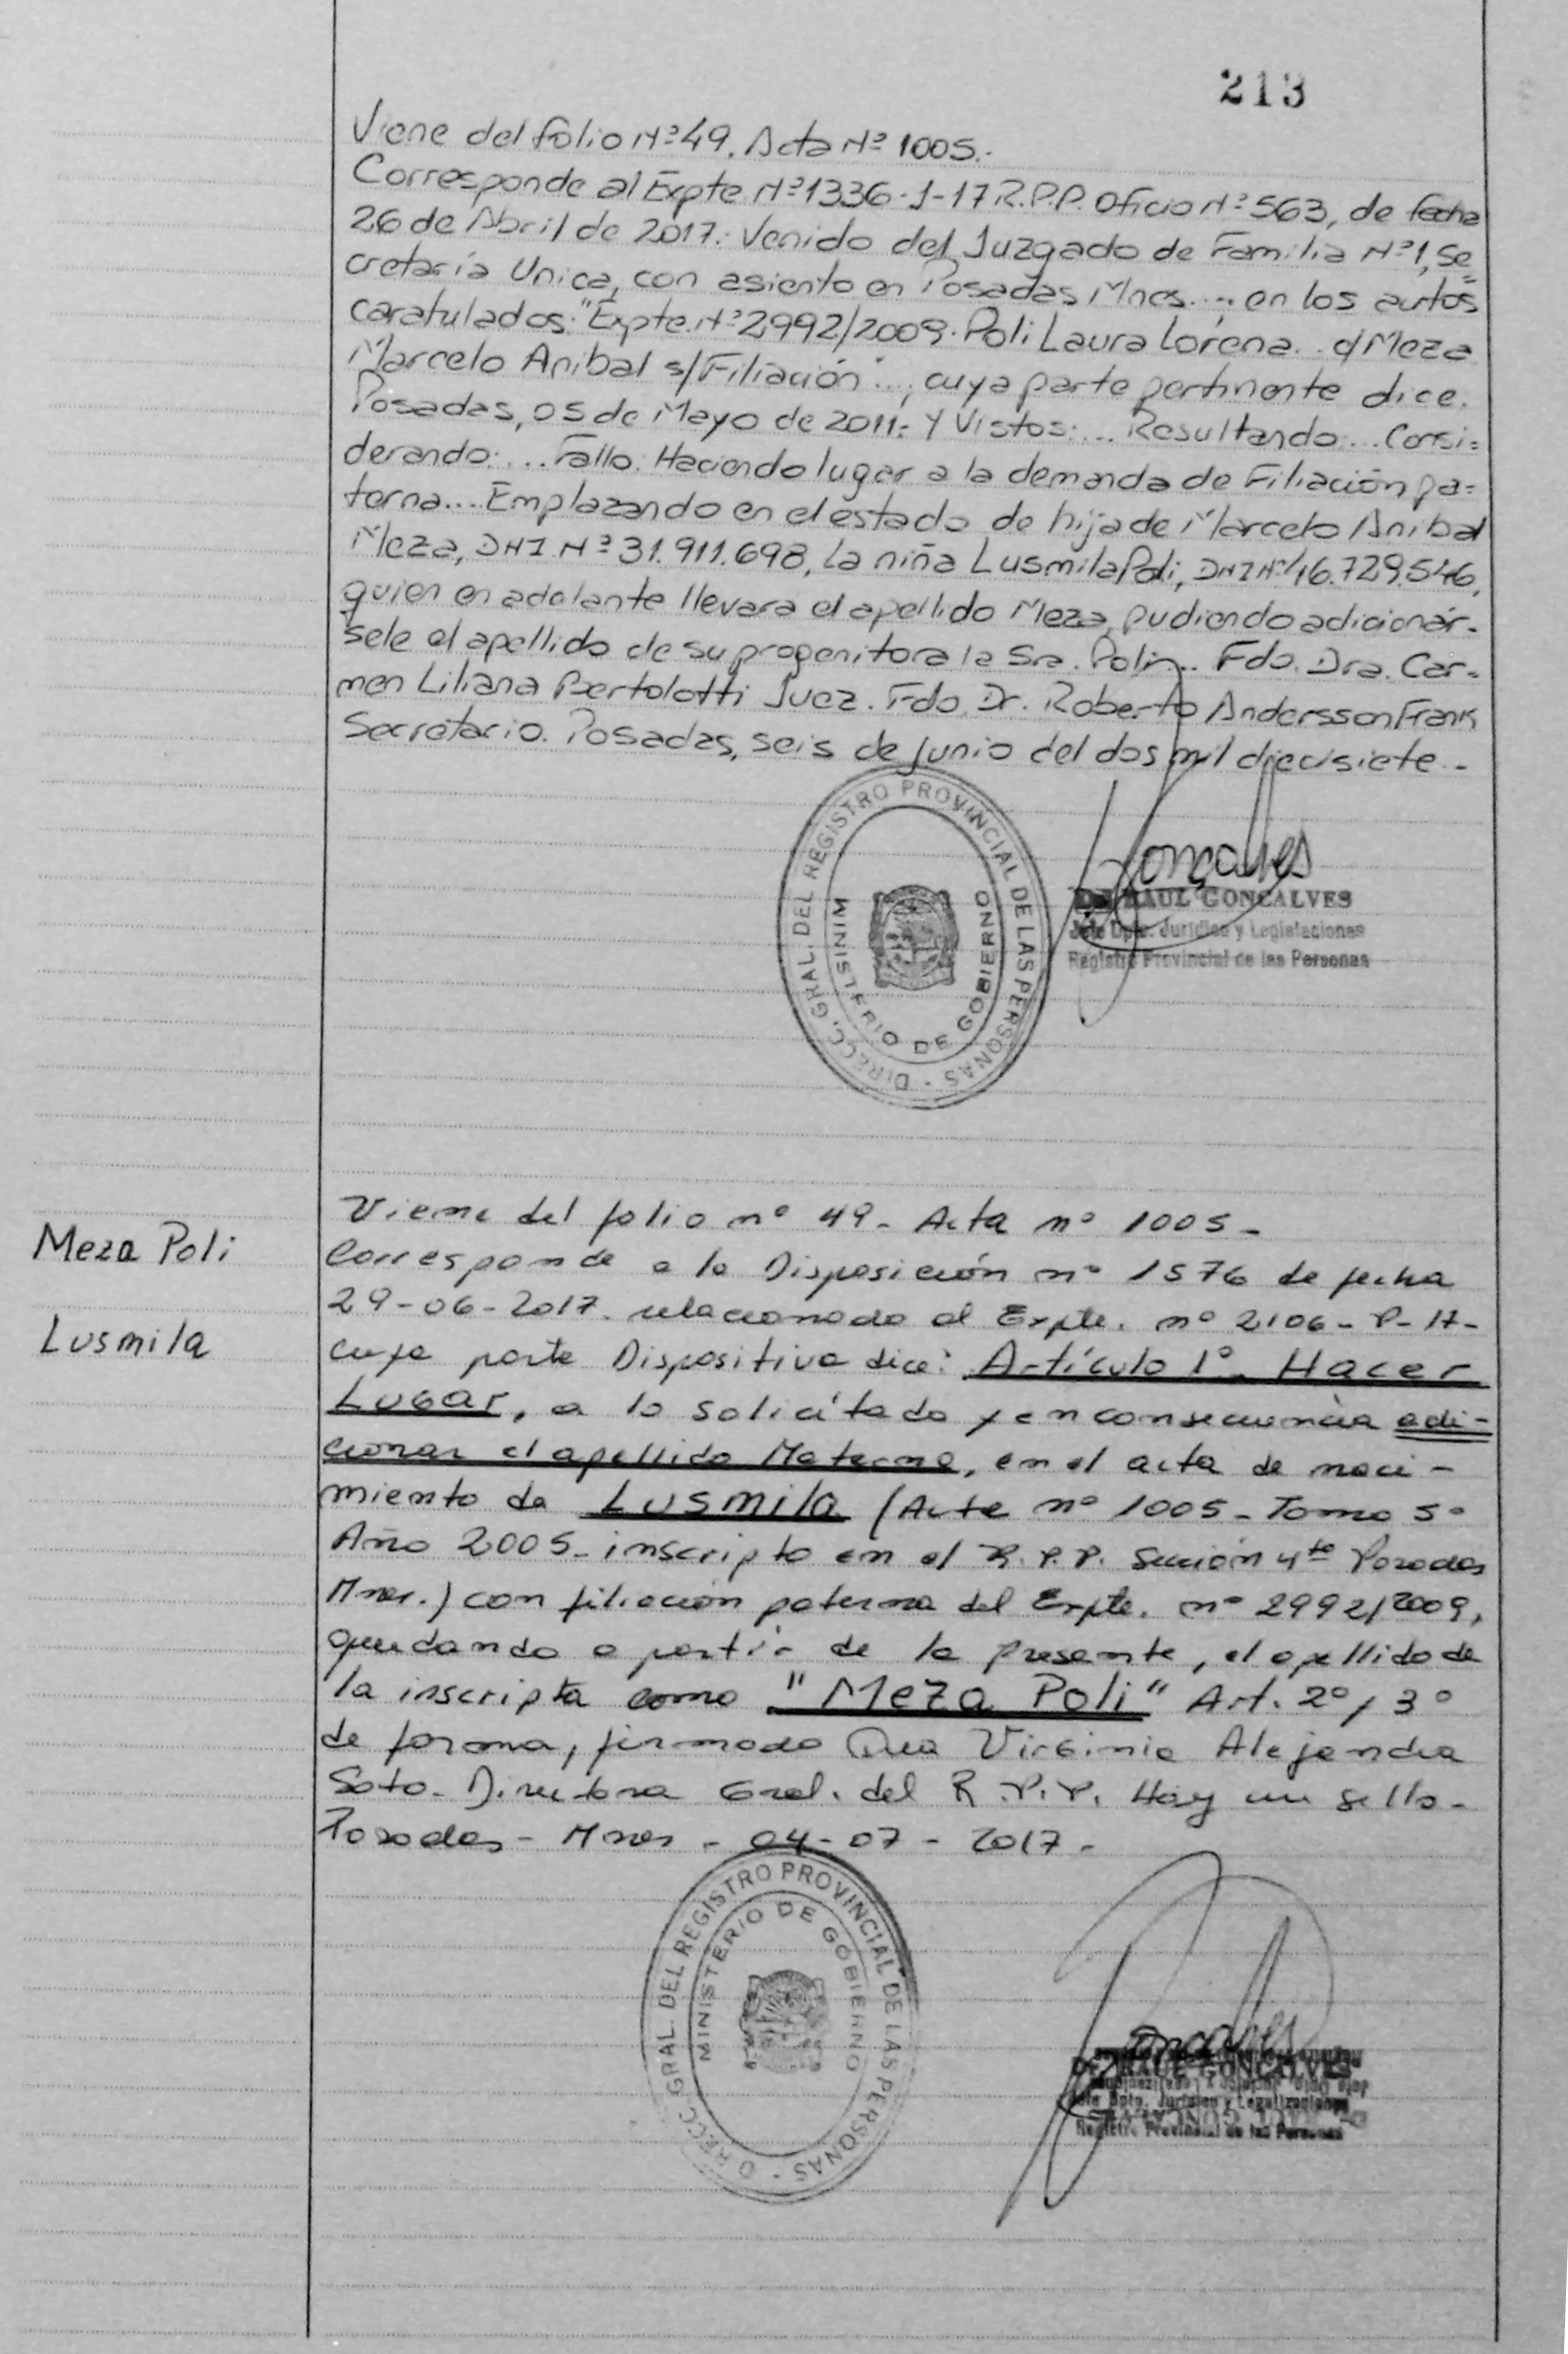 213
Viene del folio Nº 49. Acta Nº 1005.-
Corresponde al Expte Nº 1336-J-17 R.P.P. Oficio Nº 563, de fecha
26 de Abril de 2017.- Venido del Juzgado de Familia Nº 1, Se=
cretaría Unica, con asiento en Posadas Mnes... en los autos
caratulados: "Expte. Nº 2992/2009. Poli Laura Lorena.. c/ Meza
Marcelo Anibal s/ Filiación"..., cuya parte pertinente dice.
Posadas, 05 de Mayo de 2011.- Y Vistos:... Resultando:... Consi=
derando:... Fallo: Haciendo lugar a la demanda de Filiación pa=
terna... Emplazando en el estado de hija de Marcelo Anibal
Meza, DNI Nº 31.911.698, la niña Lusmila Poli, DNI Nº 46.729.546,
quien en adelante llevara el apellido Meza, pudiendo adicionár-
sele el apellido de su progenitora la Sra. Poli... Fdo. Dra. Car-
men Liliana Bertolotti Juez. Fdo. Dr. Roberto Andersson Frank
Secretario. Posadas, seis de junio del dos mil diecisiete.-
DIRECC. GRAL. DEL REGISTRO PROVINCIAL DE LAS PERSONAS -
MINISTERIO DE GOBIERNO
Goncalves
Dr. RAUL GONCALVES
Jefe Dpto. Jurídico y Legislaciones
Registro Provincial de las Personas
Meza Poli
Lusmila
Viene del folio nº 49- Acta nº 1005-
Corresponde a la Disposición nº 1576 de fecha
29-06-2017. relacionado al Expte. nº 2106-P-17-
cuya parte Dispositiva dice: Artículo 1º- Hacer
Lugar, a lo solicitado y en consecuencia adi-
cionar el apellido Materno, en el acta de naci-
miento de Lusmila (Acta nº 1005- Tomo 5º
Año 2005- inscripto en el R.P.P. Sección 4ta Posadas
Mnes.) con filiación paterna del Expte. nº 2992/2009,
quedando a partir de la presente, el apellido de
la inscripta como "Meza Poli" Art. 2º y 3º
de forma, firmado Dra Virginia Alejandra
Soto- Directora Gral. del R.P.P. Hay un sello-
Posadas- Mnes- 04-07-2017-
DIRECC. GRAL. DEL REGISTRO PROVINCIAL DE LAS PERSONAS -
MINISTERIO DE GOBIERNO
Goncalves
Dr. RAUL GONCALVES
Jefe Dpto. Jurídico y Legalizaciones
Registro Provincial de las Personas